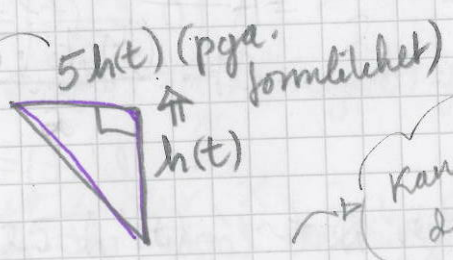 5h(t) (pga.
formlikhet)
h(t)
Kan